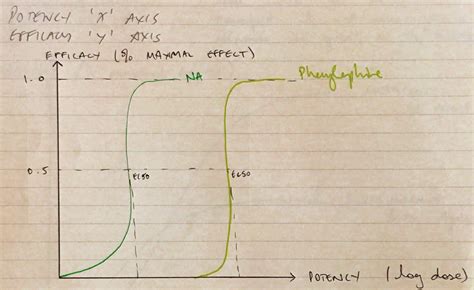 POTENCY 'X' AXIS
EFFICACY 'Y' AXIS
EFFICACY (% MAXIMAL EFFECT)
1.0
NA
Phenylephrine
0.5
EC50
EC50
POTENCY (log dose)